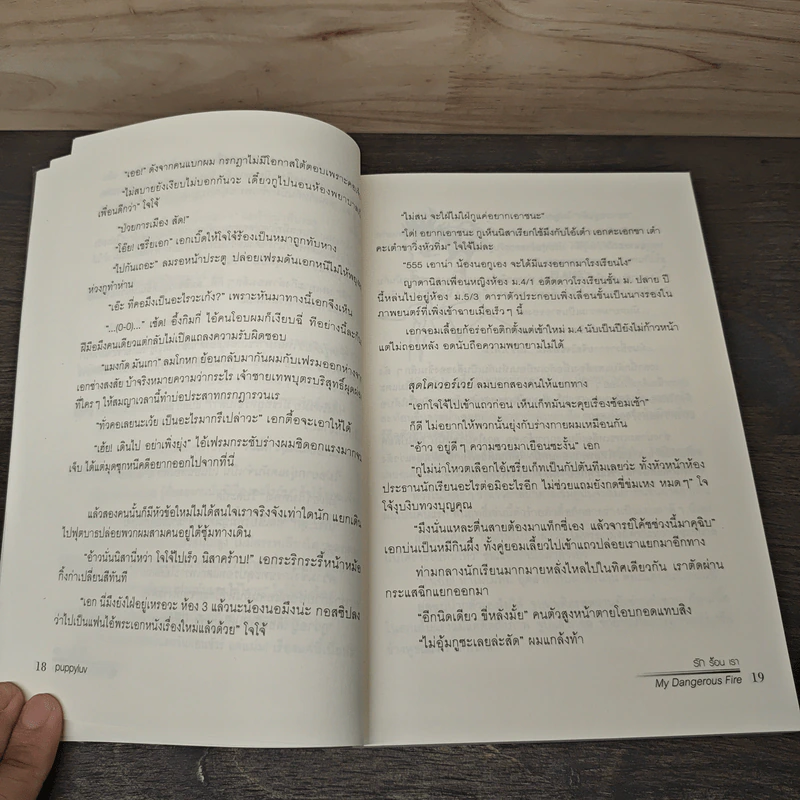 "เออ!" ดังจากคนแบกผม กรกฎาไม่มีโอกาสโต้ตอบเพราะคอ
"ไม่สบายยังเงียบไม่บอกกันวะ เดี๋ยวกูไปนอนห้องพยาบาล
เพื่อนดีกว่า" โจโจ้
"ป่วยการเมือง สัด!"
"โอ๊ย! เชรี่ยเอก" เอกเบิ๊ดให้โจโจ้ร้องเป็นหมาถูกทับหาง
"ไปกันเถอะ" ลมรอหน้าประตู ปล่อยเฟรมดันเอกหนีไม่ให้
ห่วงกูทำห่าน
"เอ๊ะ ที่คอมึงเป็นอะไรวะเก้ง?" เพราะหันมาทางนี้เอกจึงเห็น
"...(0-0)..." เชัด! อึ้งกิมกี่ ไอ้คนโอบผมก็เงียบฉี่ ทีอย่างนี้ละ
ฝีมือมึงคนเดียวแต่กลับไม่เปิดแถลงความรับผิดชอบ
"แมงกัด มันเกา" ลมโกหก ย้อนกลับมากันผมกับเฟรมออกห่าง
เอกช่างสงสัย บ้าจริงหมายความว่ากระไร เจ้าชายเทพบุตรบริสุทธิ์ผุด
ที่ใครๆ ให้สมญาเวลานี้ทำบ่อประสาทกรกฎารวนเร
"ทัวคอเลยนะเว้ย เป็นอะไรมากรึเปล่าวะ" เอกตื้อจะเอาให้ได้
"เฮ้ย! เดินไป อย่าเพิ่งยุ่ง" ไอ้เฟรมกระชับร่างผมชิดอกแรงมาก
เจ็บ ได้แต่มุดซุกหนีคดีอยากออกไปจากที่นี่
แล้วสองคนนั้นก็มีหัวข้อใหม่ไม่ได้สนใจเราจริงจังเท่าใดนัก แยกเดิน
ไปฟุตบาธปล่อยพวกผมสามคนอยู่ใต้ซุ้มทางเดิน
"อ้าวนั่นนิสานี่หว่า โจโจ้ไปเร็ว นิสาคร้าบ!" เอกระริกระรี้หน้าหม้อ
กิ้งก่าเปลี่ยนสีทันที
"เอก นี่มึงยังไฝ่อยู่เหรอวะ ห้อง 3 แล้วนะน้องนอมึงน่ะ กอสซิปลง
ว่าไปเป็นแฟนไอ้พระเอกหนังเรื่องใหม่แล้วด้วย" โจโจ้
18 puppyluv
"ไม่สน จะใฝ่ไม่ใฝ่กูแค่อยากเอาชนะ"
"โด่! อยากเอาชนะ กูเห็นนิสาเรียกใช้มึงกับไอ้เต๋า เอกคะเอกขา เต๋า
คะเต๋าขาวิ่งหัวทิ่ม" โจโจ้ไม่ละ
"555 เอาน่า น้องนอกูเอง จะได้มีแรงอยากมาโรงเรียนไง"
ญาดานิสาเพื่อนหญิงห้อง ม.4/1 อดีตดาวโรงเรียนชั้น ม. ปลาย ปี
นี้หล่นไปอยู่ห้อง ม.5/3 ดาราตัวประกอบเพิ่งเลื่อนขั้นเป็นนางรองใน
ภาพยนตร์ที่เพิ่งเข้าฉายเมื่อเร็วๆ นี้
เอกจอมเลื้อยก้อร่อก้อติกตั้งแต่เข้าใหม่ ม.4 นับเป็นปียังไม่ก้าวหน้า
แต่ไม่ถอยหลัง อดนับถือความพยายามไม่ได้
สุดโคเวอร์เวย์ ลมบอกสองคนให้แยกทาง
"เอกโจโจ้ไปเข้าแถวก่อน เห็นเก็ทมันจะคุยเรื่องซ้อมเช้า"
ก็ดี ไม่อยากให้พวกนั้นยุ่งกับร่างกายผมเหมือนกัน
"อ้าว อยู่ดีๆ ความซวยมาเยือนซะงั้น" เอก
"กูไม่น่าโหวตเลือกไอ้เชรี่ยเก็ทเป็นกัปตันทีมเลยว่ะ ทั้งหัวหน้าห้อง
ประธานนักเรียนอะไรต่อมิอะไรอีก ไม่ช่วยแถมยังกดขี่ข่มเหง หมดๆ" โจ
โจ้งุบงิบทวงบุญคุณ
"มึงนั่นแหละตื่นสายต้องมาแท็กซี่เอง แล้วจารย์โค้ชช่วงนี้มาคุฉิบ"
เอกบ่นเป็นหมีกินผึ้ง ทั้งคู่ยอมเลี้ยวไปเข้าแถวปล่อยเราแยกมาอีกทาง
ท่ามกลางนักเรียนมากมายหลั่งไหลไปในทิศเดียวกัน เราตัดผ่าน
กระแสฉีกแยกออกมา
"อีกนิดเดียว ขี่หลังมั้ย" คนตัวสูงหน้าตายโอบกอดแทบสิง
"ไม่อุ้มกูซะเลยล่ะสัด" ผมแกล้งท้า
รัก ร้อน เรา
My Dangerous Fire 19